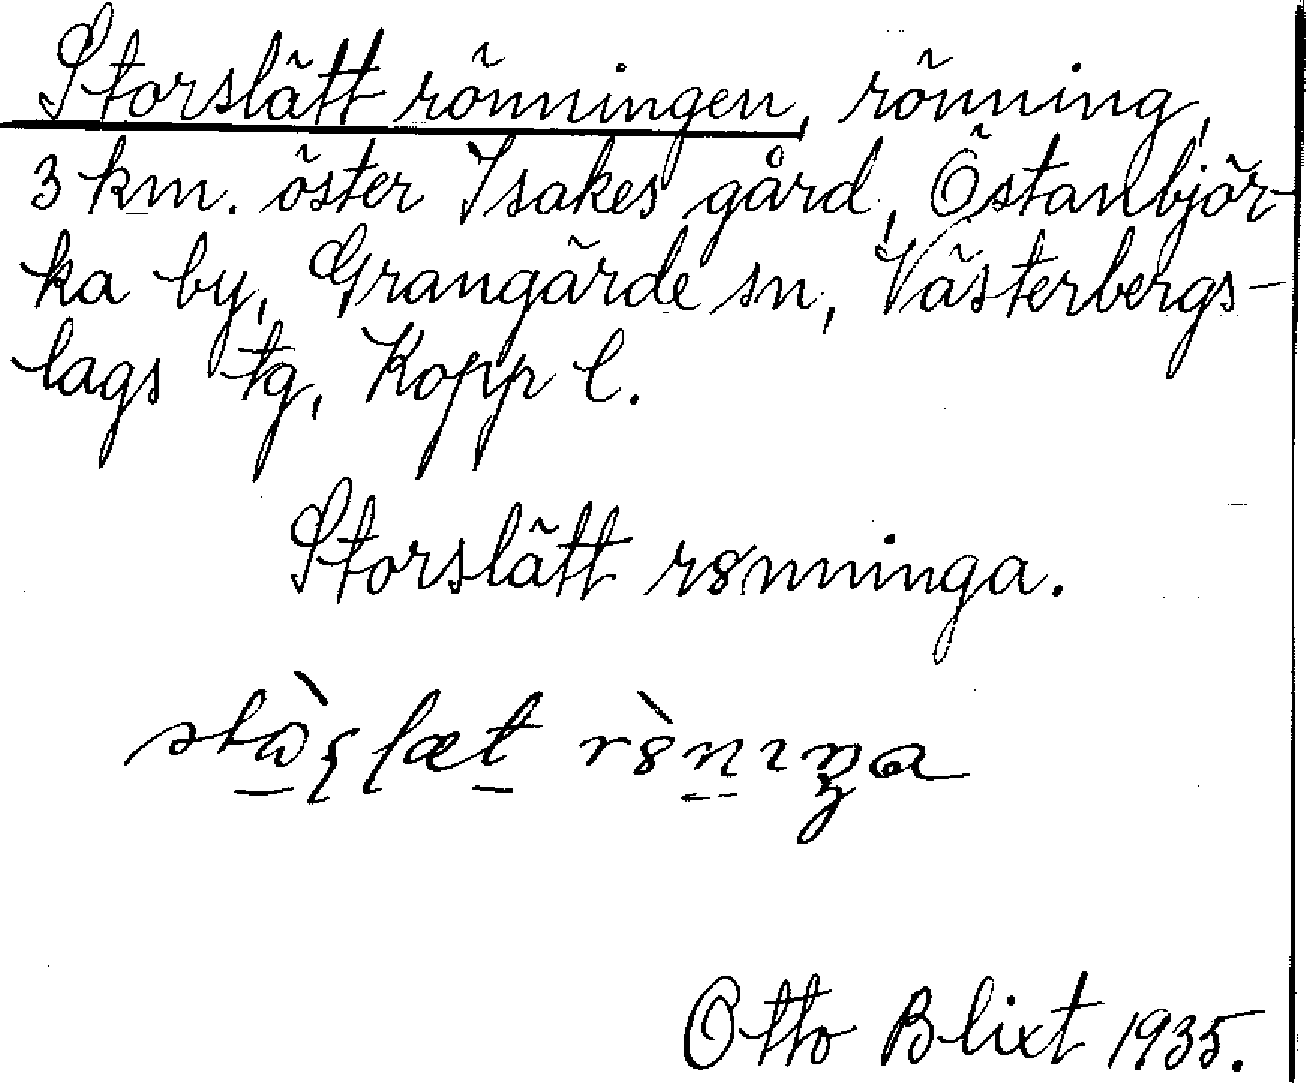 Storslätt rönningen, rönning,
3 km. öster Isakes gård, Östanbjör-
ka by, Grangärde sn, Västerbergs-
lags tg, Kopp l.
Storslätt r8nninga.
Otto Blixt 1935.